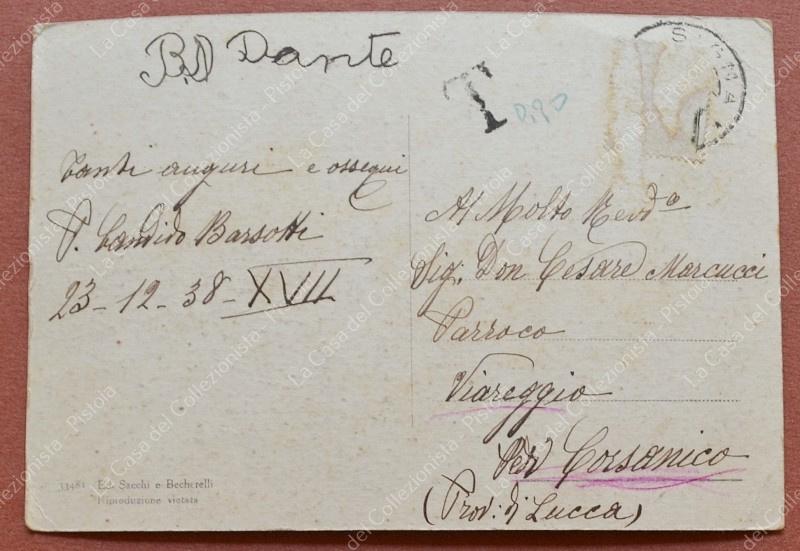 Dante
T
0.30
SIGNA
Tanti auguri e ossequi
P. Candido Barsotti
23-12-38-XVII
Al Molto Revdo
Sig. Don Cesare Marcucci
Parroco
Viareggio
per Corsanico
(Prov: di Lucca)
Ed. Sacchi e Becherelli
Riproduzione vietata
La Casa del Collezionista - Pistoia